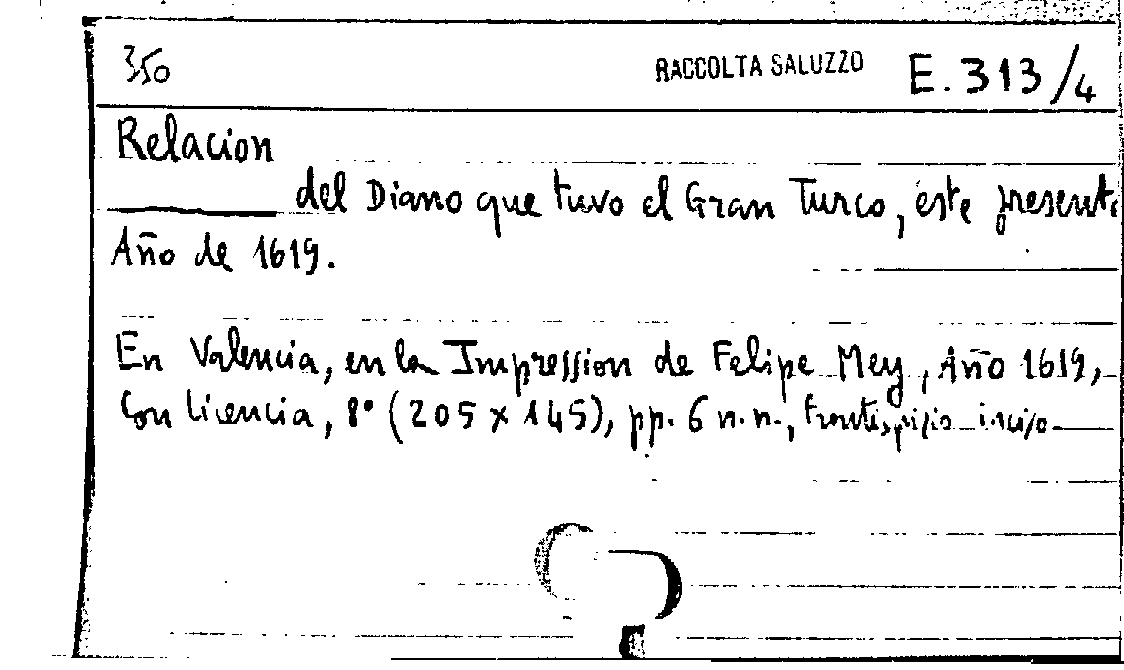 350 RACCOLTA SALUZZO E. 313/4
Relacion
del Diano que tuvo el Gran Turco, este presente
Año de 1619.
En Valencia, en la Impression de Felipe Mey, Año 1619,
Con licencia, 8° (205 x 145), pp. 6 n.n., frontispizio inciso